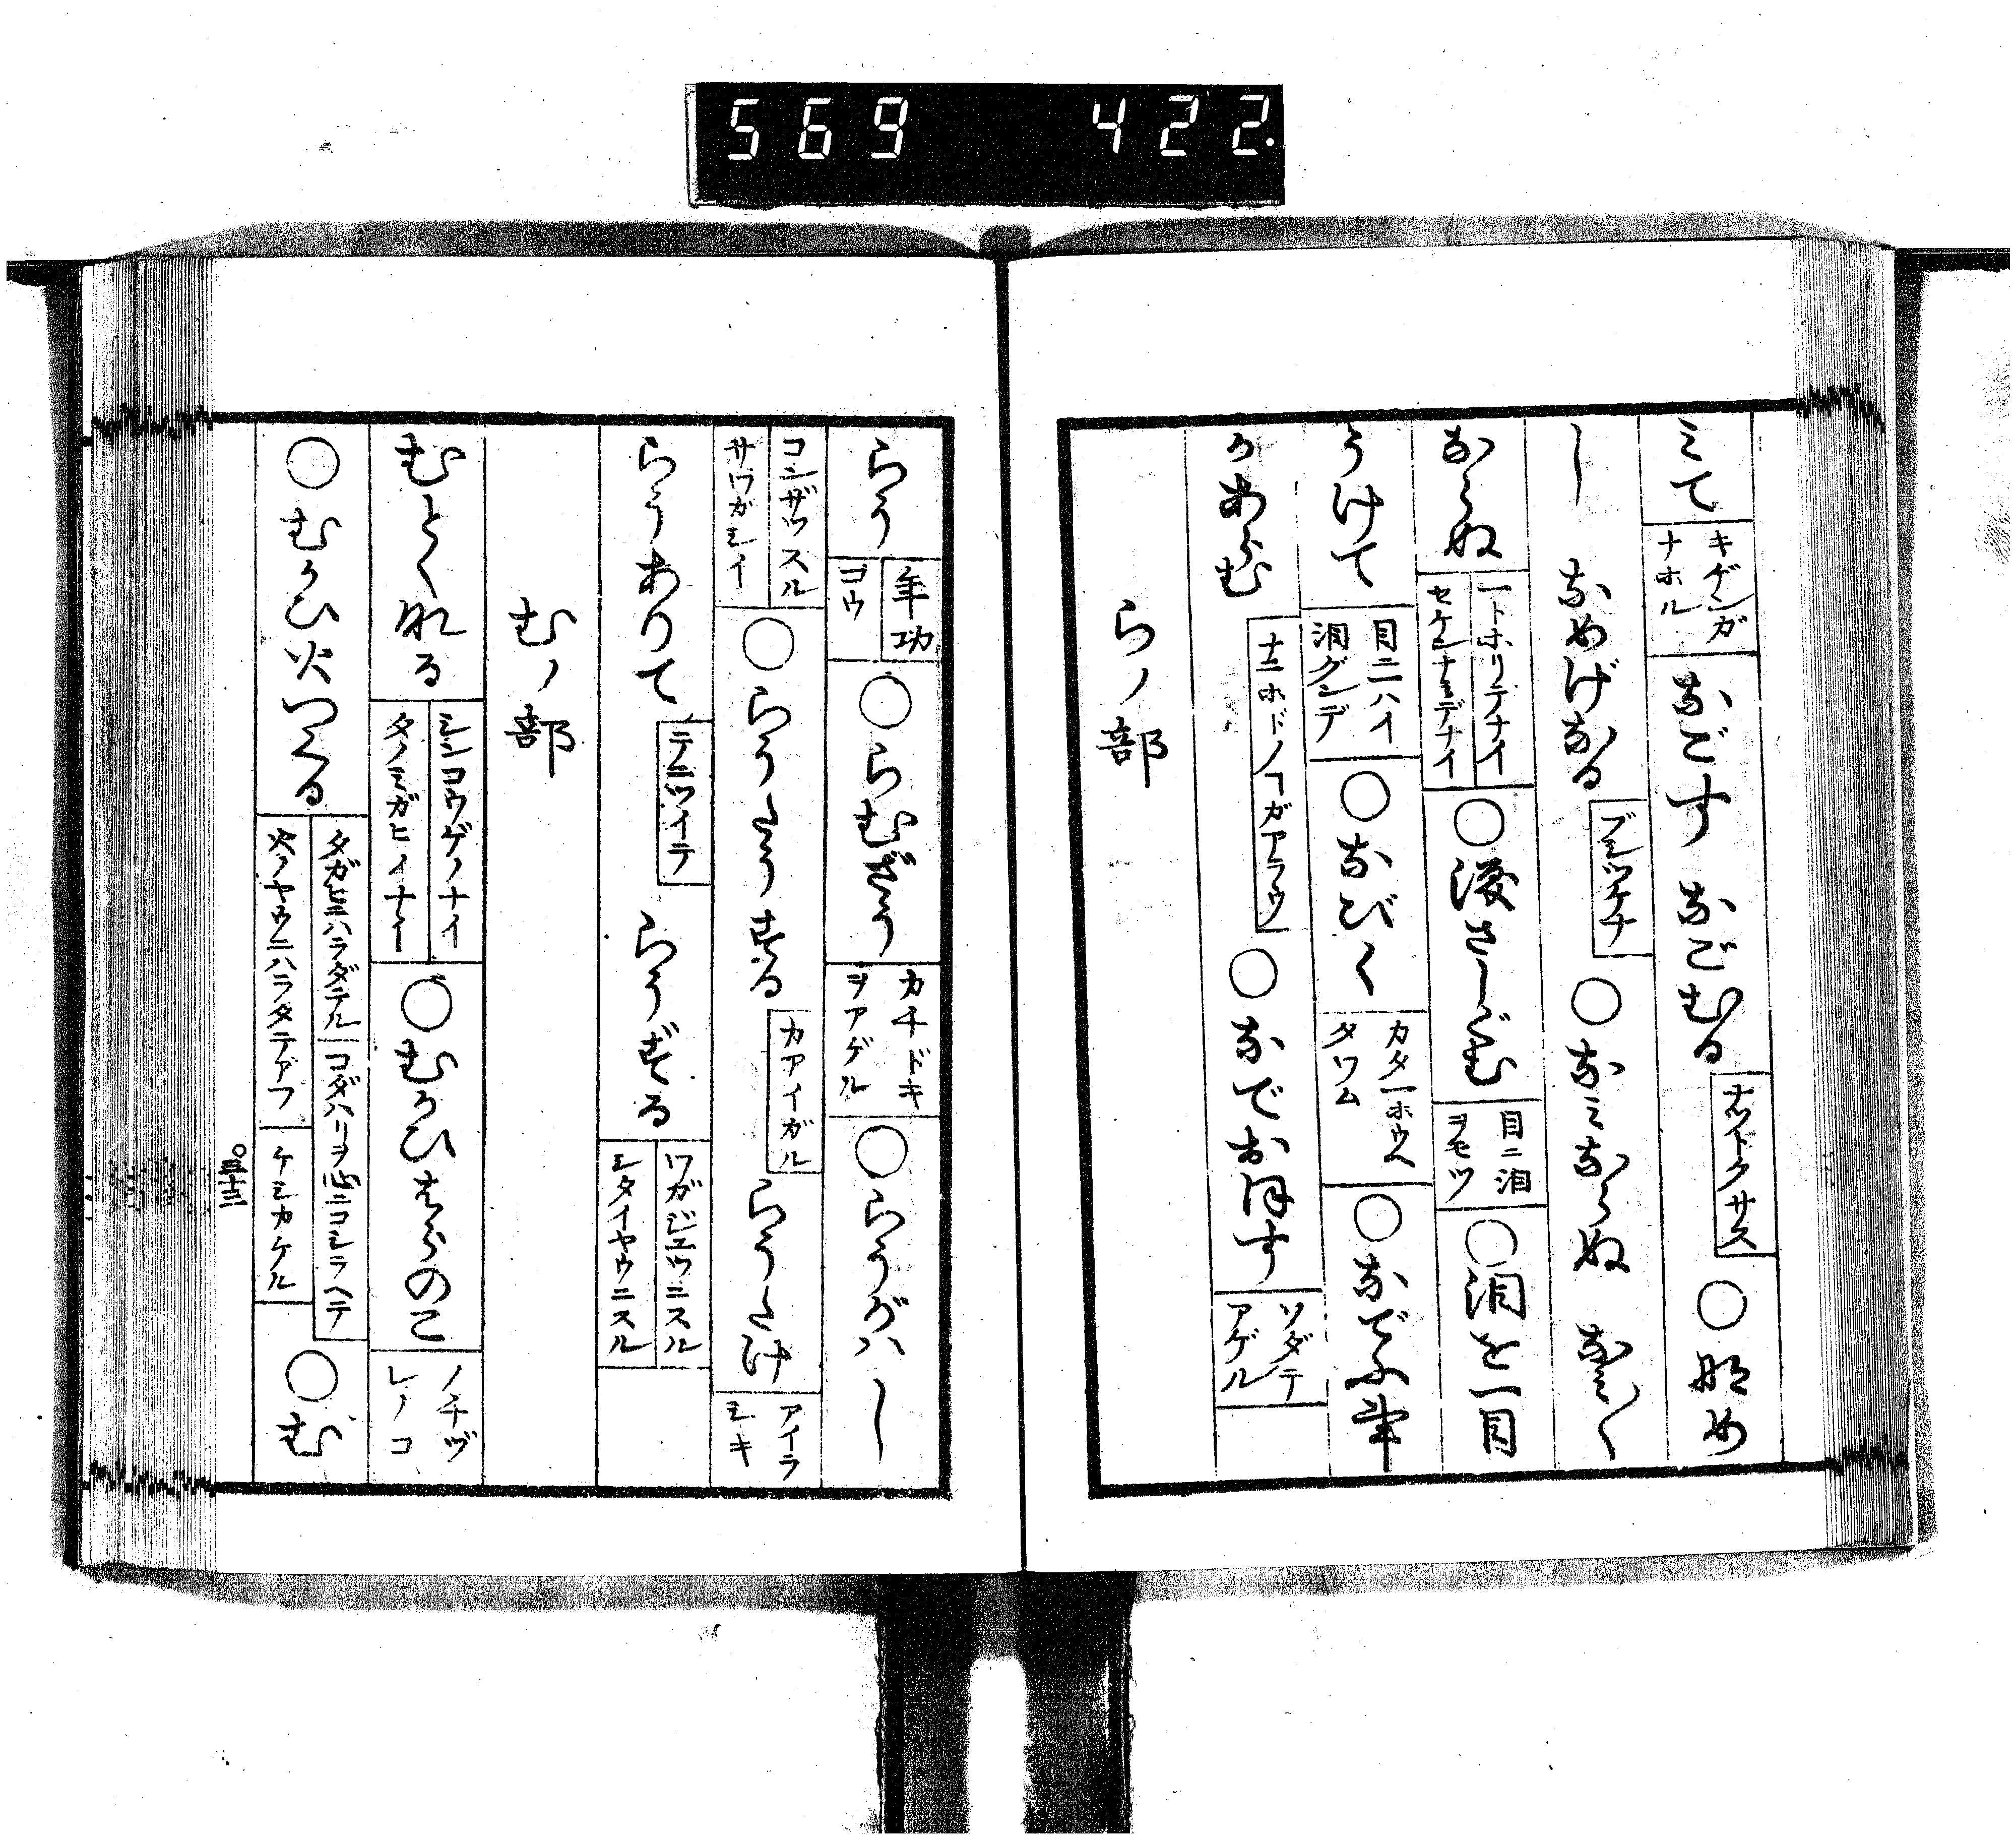 569 422.
みて キゲンガ ナホル なごす なごむる ナットクサス ○なめ
し なめげなる ブシツケナ ○なみならぬ なみ〱
ならぬ 一トホリデナイ セケンナミデナイ ○涙さしぐむ 目ニ泪ヲモツ ○泪を一目
うけて 目ニハイ泪グンデ ○なびく カタ一ホウヘタワム ○なでふ事
かあらむ ナニホドノコガアラウ ○なでおほす ソダテアゲル
らノ部
らう 年功 ゴウ ○らむざう カチドキヲアゲル ○らうがハし
コンザツスル サワガシイ ○らうたうする カアイガル らうたげ アイラシキ
らうありて テニツイテ らうずる ワガジユウニスル シタイヤウニスル
むノ部
むとくなる シンコウゲノナイ タノミガヒイナイ ○むかひはらのこ ノチヅレノコ
○むかひ火つくる タガヒニハラダテル 火ノヤウニハラタテアフ コダハリヲ心ニコシラヘテ ケシカケル ○む
○三十三